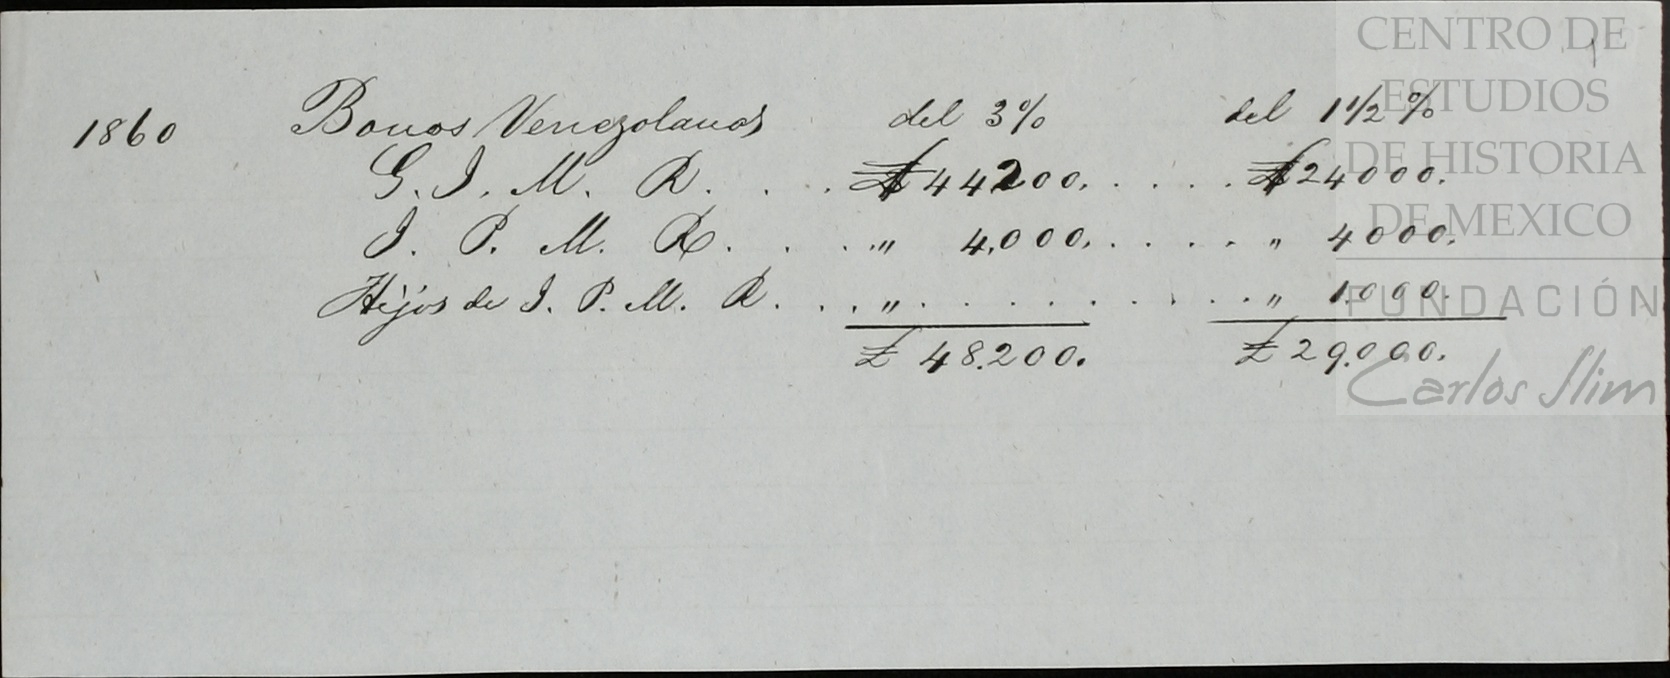 CENTRO DE
ESTUDIOS
DE HISTORIA
DE MEXICO
FUNDACIÓN
Carlos Slim
1860 Bonos Venezolanos del 3% del 1 1/2 %
G. J. M. R. . . . £ 44200. . . . . £ 24000.
J. P. M. R. . . . " 4,000. . . . . " 4000.
Hijos de J. P. M. R. . . . " . . . . . . . . . " 1.000.
£ 48.200. £ 29.000.